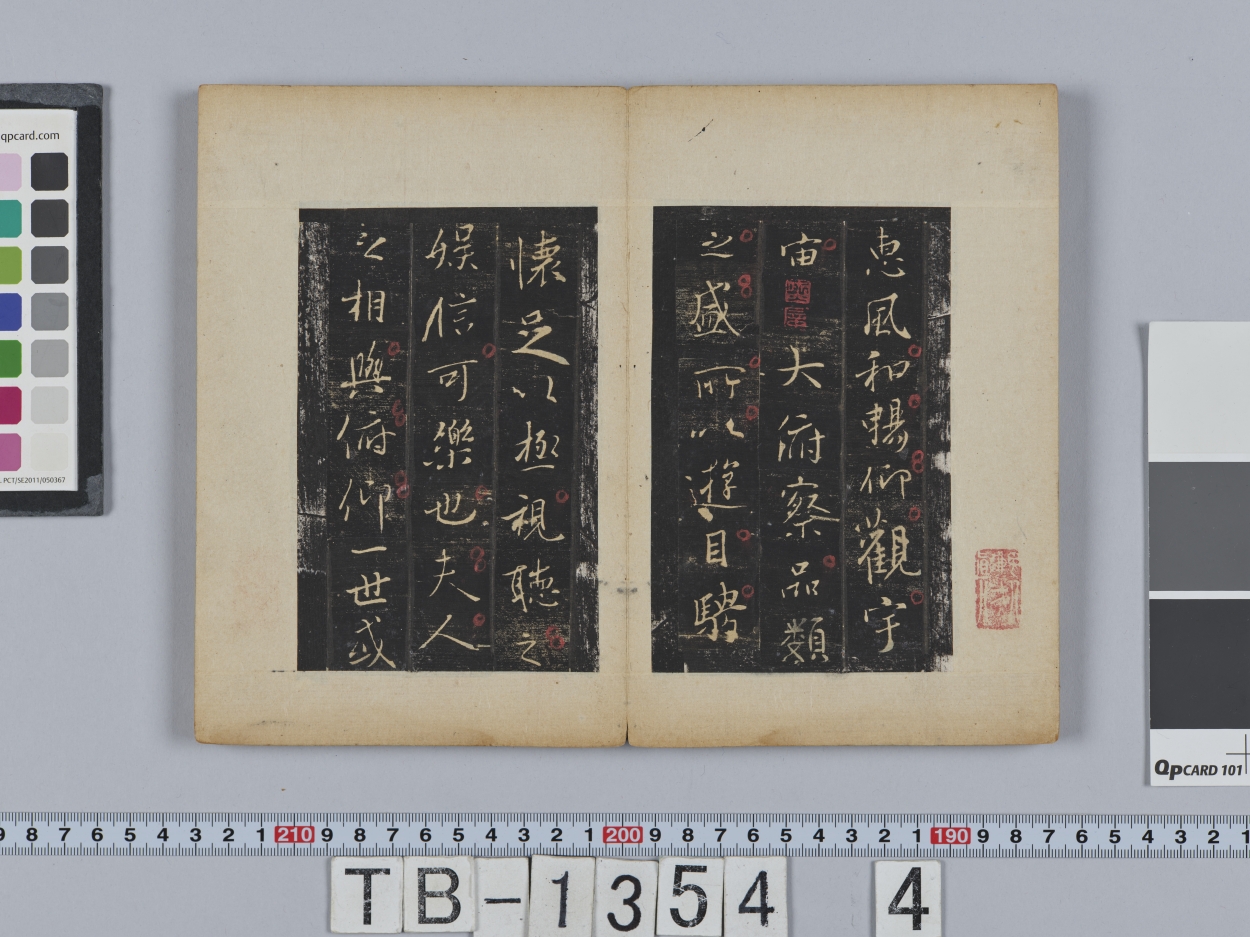 惠風和暢仰觀宇
宙大俯察品類
之盛所以遊目騁
懷足以極視聽之
娛信可樂也夫人
之相與俯仰一世或
qpcard.com
PCT/SE2011/050367
QPCARD 101
9 8 7 6 5 4 3 2 1 210 9 8 7 6 5 4 3 2 1 200 9 8 7 6 5 4 3 2 1 190 9 8 7 6 5 4 3 2 1
TB-1354 4